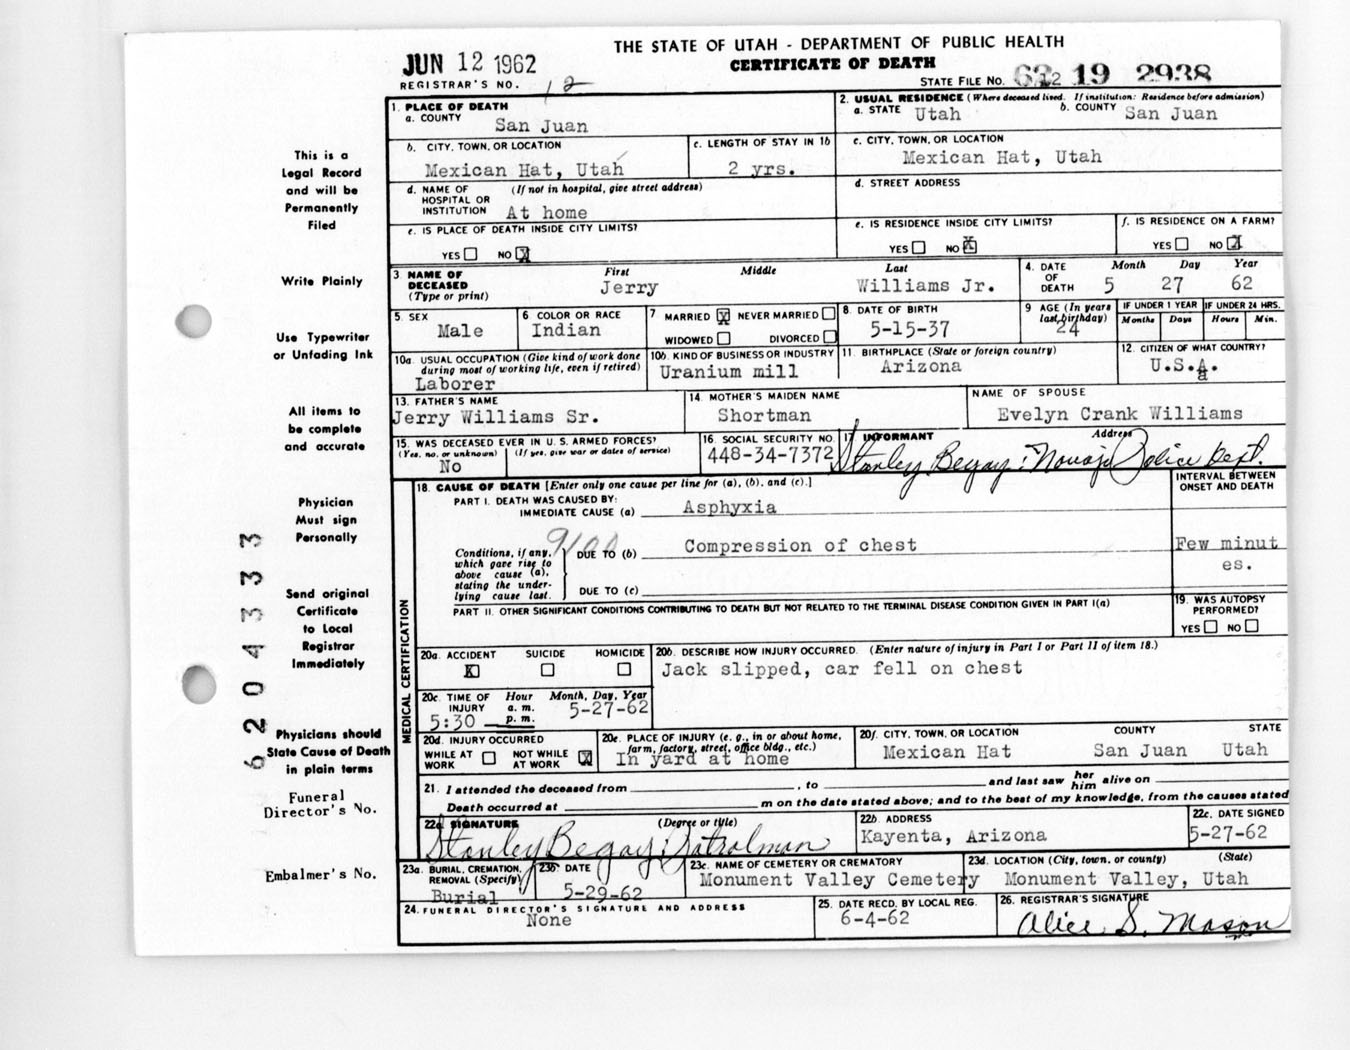 THE STATE OF UTAH - DEPARTMENT OF PUBLIC HEALTH
CERTIFICATE OF DEATH
JUN 12 1962
REGISTRAR'S NO. 12
STATE FILE NO. 62 19 2938
This is a
Legal Record
and will be
Permanently
Filed
Write Plainly
Use Typewriter
or Unfading Ink
All items to
be complete
and accurate
Physician
Must sign
Personally
Send original
Certificate
to Local
Registrar
Immediately
Physicians should
State Cause of Death
in plain terms
Funeral
Director's No.
Embalmer's No.
6204333
1. PLACE OF DEATH
a. COUNTY San Juan
2. USUAL RESIDENCE (Where deceased lived. If institution: Residence before admission)
a. STATE Utah b. COUNTY San Juan
b. CITY, TOWN, OR LOCATION
Mexican Hat, Utah
c. LENGTH OF STAY IN 1b
2 yrs.
c. CITY, TOWN, OR LOCATION
Mexican Hat, Utah
d. NAME OF HOSPITAL OR INSTITUTION (If not in hospital, give street address)
At home
d. STREET ADDRESS
e. IS PLACE OF DEATH INSIDE CITY LIMITS?
YES NO X
e. IS RESIDENCE INSIDE CITY LIMITS?
YES NO X
f. IS RESIDENCE ON A FARM?
YES NO X
3. NAME OF DECEASED (Type or print)
First Middle Last
Jerry Williams Jr.
4. DATE OF DEATH Month Day Year
5 27 62
5. SEX
Male
6 COLOR OR RACE
Indian
7 MARRIED X NEVER MARRIED
WIDOWED DIVORCED
8. DATE OF BIRTH
5-15-37
9 AGE (In years last birthday)
24
IF UNDER 1 YEAR
Months Days
IF UNDER 24 HRS.
Hours Min.
10a. USUAL OCCUPATION (Give kind of work done during most of working life, even if retired)
Laborer
10b. KIND OF BUSINESS OR INDUSTRY
Uranium mill
11. BIRTHPLACE (State or foreign country)
Arizona
12. CITIZEN OF WHAT COUNTRY?
U.S.A.
13. FATHER'S NAME
Jerry Williams Sr.
14. MOTHER'S MAIDEN NAME
Shortman
NAME OF SPOUSE
Evelyn Crank Williams
15. WAS DECEASED EVER IN U. S. ARMED FORCES?
(Yes, no, or unknown) (If yes, give war or dates of service)
No
16. SOCIAL SECURITY NO.
448-34-7372
17. INFORMANT Address
Stanley Begay: Navajo Police Dept.
MEDICAL CERTIFICATION
18. CAUSE OF DEATH [Enter only one cause per line for (a), (b), and (c).]
INTERVAL BETWEEN ONSET AND DEATH
PART I. DEATH WAS CAUSED BY:
IMMEDIATE CAUSE (a) Asphyxia
Conditions, if any, which gave rise to above cause (a), stating the underlying cause last.
DUE TO (b) Compression of chest
Few minut
es.
DUE TO (c)
PART II. OTHER SIGNIFICANT CONDITIONS CONTRIBUTING TO DEATH BUT NOT RELATED TO THE TERMINAL DISEASE CONDITION GIVEN IN PART I(a)
19. WAS AUTOPSY PERFORMED?
YES NO
20a. ACCIDENT SUICIDE HOMICIDE
X
20b. DESCRIBE HOW INJURY OCCURRED. (Enter nature of injury in Part I or Part II of item 18.)
Jack slipped, car fell on chest
20c. TIME OF INJURY Hour a. m. p. m. Month, Day, Year
5:30 5-27-62
20d. INJURY OCCURRED
WHILE AT WORK NOT WHILE AT WORK X
20e. PLACE OF INJURY (e. g., in or about home, farm, factory, street, office bldg., etc.)
In yard at home
20f. CITY, TOWN, OR LOCATION COUNTY STATE
Mexican Hat San Juan Utah
21. I attended the deceased from , to and last saw her him alive on
Death occurred at m on the date stated above; and to the best of my knowledge, from the causes stated
22a SIGNATURE (Degree or title)
Stanley Begay: Patrolman
22b. ADDRESS
Kayenta, Arizona
22c. DATE SIGNED
5-27-62
23a. BURIAL, CREMATION, REMOVAL (Specify)
Burial
23b. DATE
5-29-62
23c. NAME OF CEMETERY OR CREMATORY
Monument Valley Cemetery
23d. LOCATION (City, town, or county) (State)
Monument Valley, Utah
24. FUNERAL DIRECTOR'S SIGNATURE AND ADDRESS
None
25. DATE RECD. BY LOCAL REG.
6-4-62
26. REGISTRAR'S SIGNATURE
Alice S. Mason